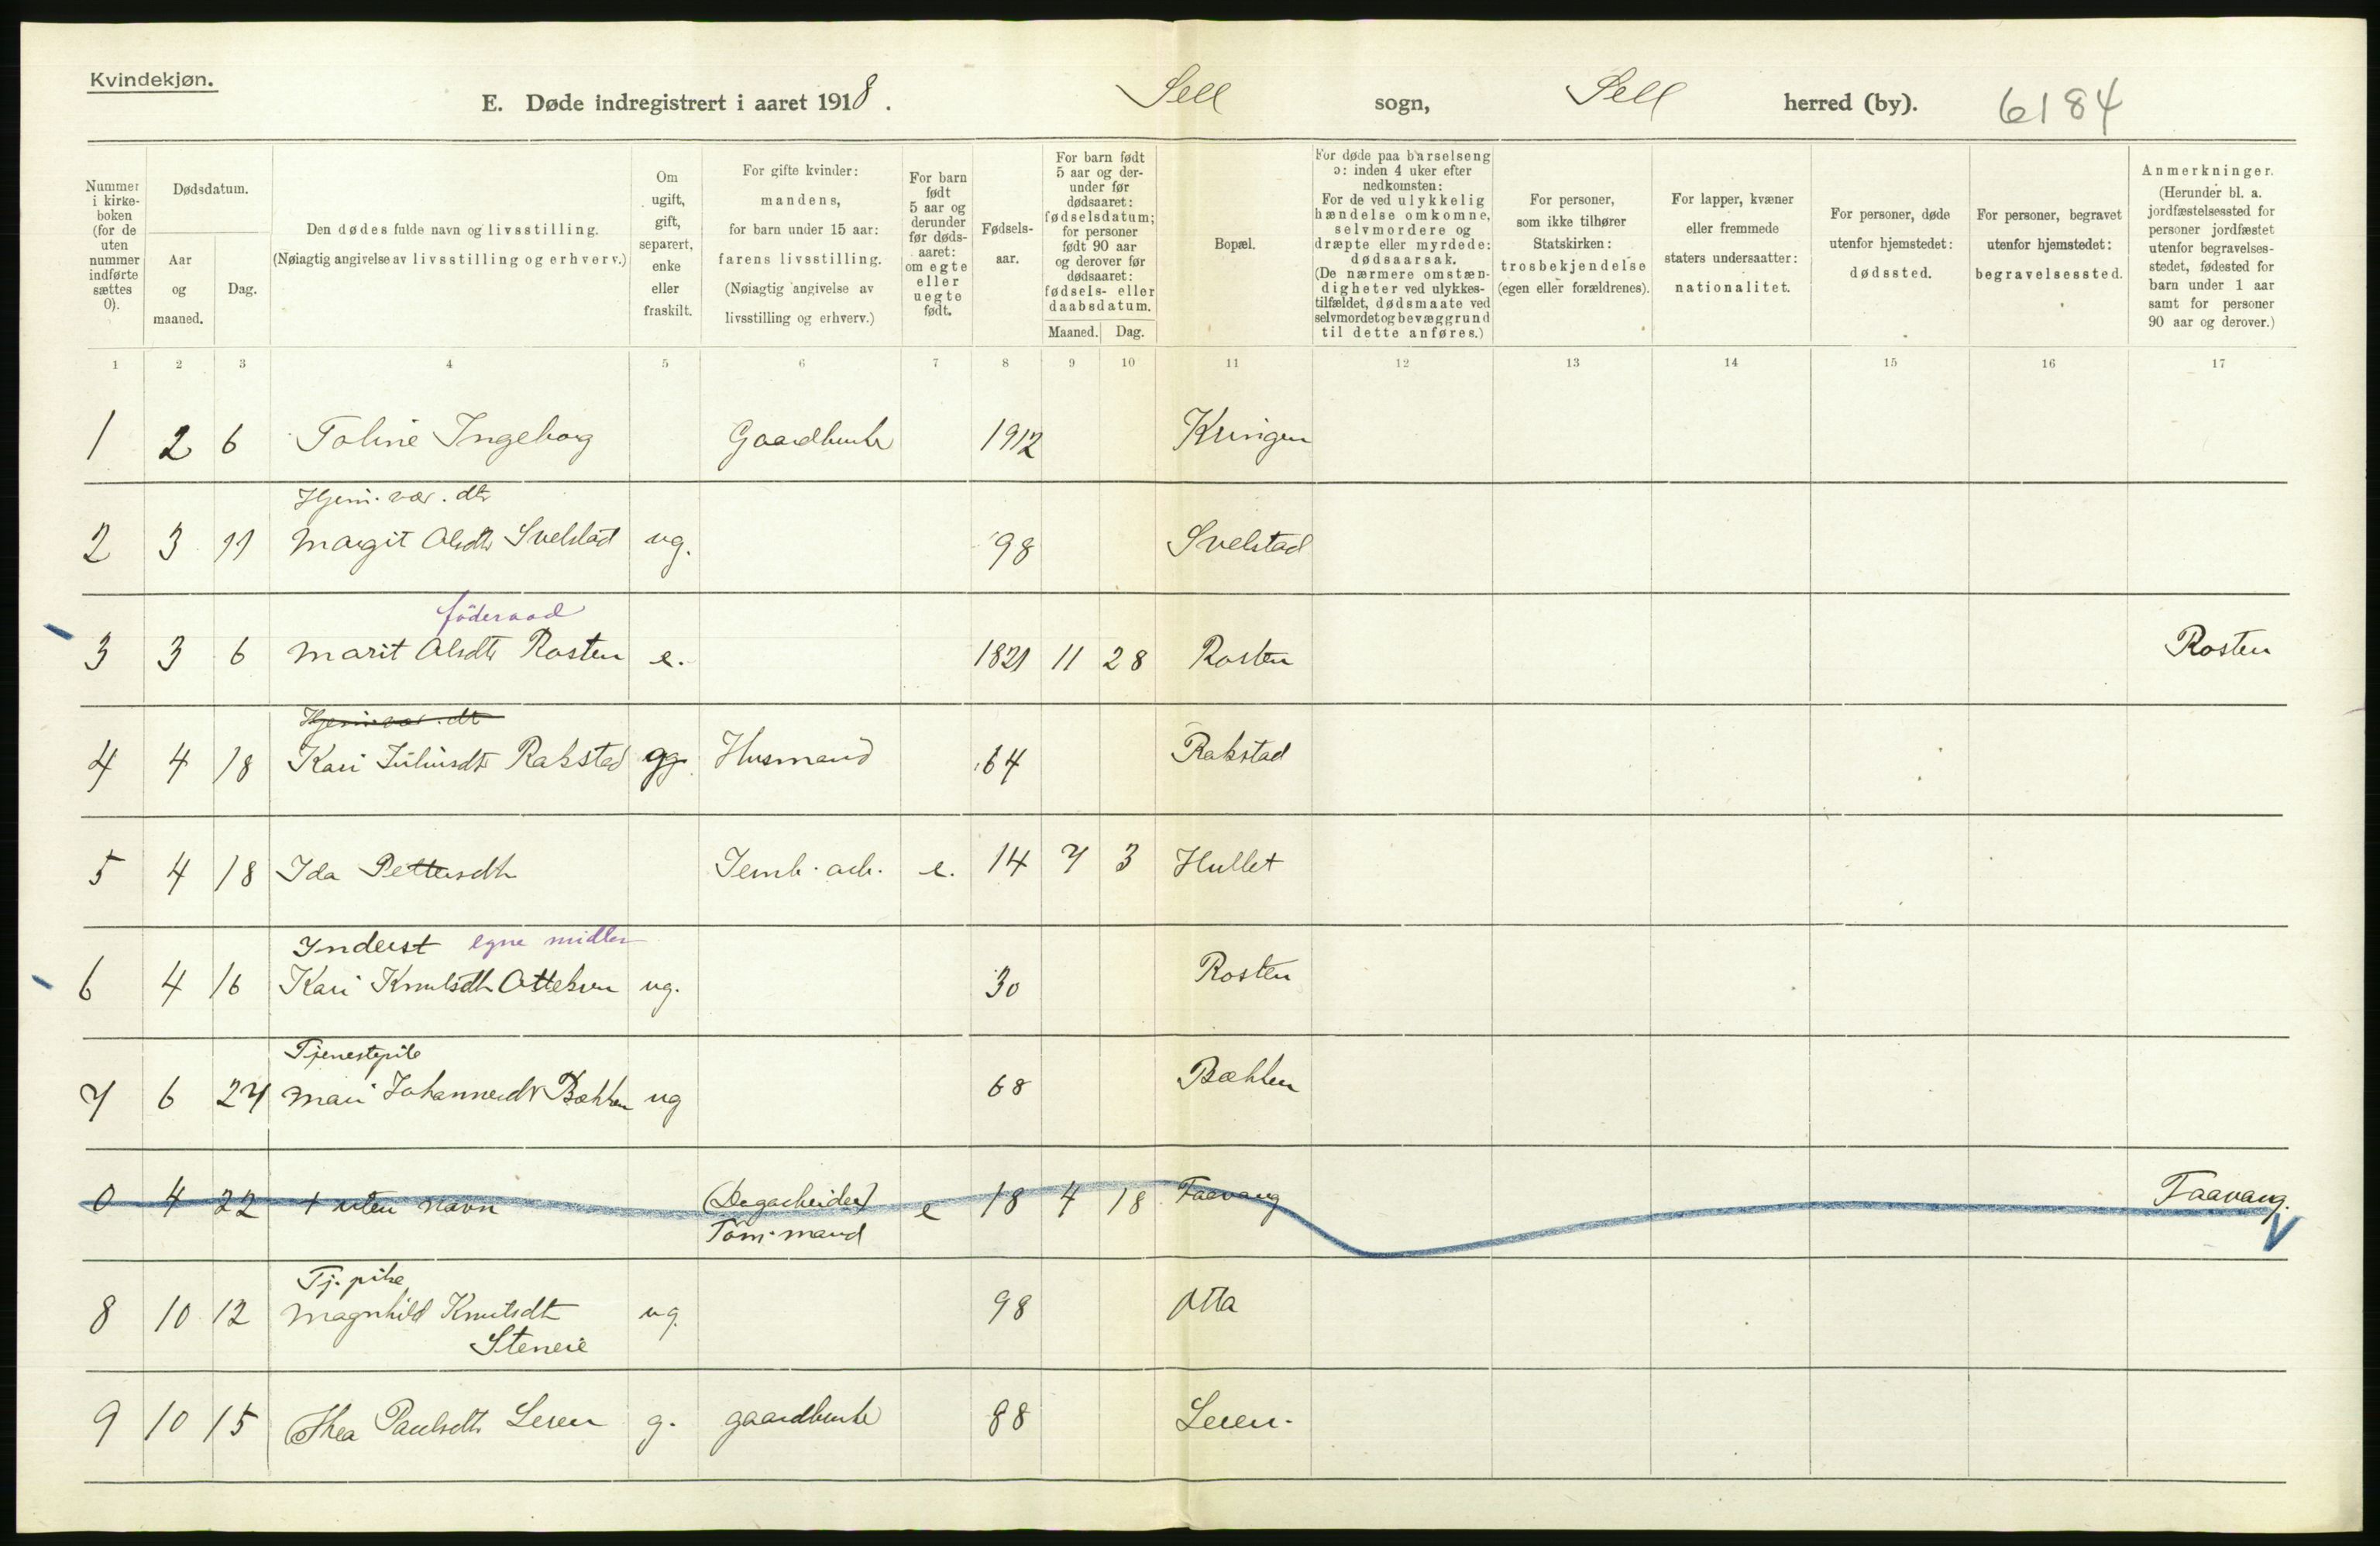 Kvindekjøn.
E. Døde indregistrert i aaret 1918. Sell sogn, Sell herred (by). 6184
Nummer i kirke-boken (for de uten nummer indførte sættes 0).
Dødsdatum.
Aar og maaned.
Dag.
Den dødes fulde navn og livsstilling.
(Nøiagtig angivelse av livsstilling og erhverv.)
Om ugift, gift, separert, enke eller fraskilt.
For gifte kvinder:
mandens,
for barn under 15 aar:
farens livsstilling.
(Nøiagtig angivelse av
livsstilling og erhverv.)
For barn født 5 aar og derunder før døds-aaret: om egte eller uegte født.
Fødsels-aar.
For barn født 5 aar og der-under før dødsaaret: fødselsdatum; for personer født 90 aar og derover før dødsaaret: fødsels- eller daabsdatum.
Maaned. Dag.
Bopæl.
For døde paa barselseng
ɔ: inden 4 uker efter
nedkomsten:
For de ved ulykkelig
hændelse omkomne,
selvmordere og
dræpte eller myrdede:
dødsaarsak.
(De nærmere omstæn-
digheter ved ulykkes-
tilfældet, dødsmaate ved
selvmordet og bevæggrund
til dette anføres.)
For personer,
som ikke tilhører
Statskirken:
trosbekjendelse
(egen eller forældrenes).
For lapper, kvæner
eller fremmede
staters undersaatter:
nationalitet.
For personer, døde
utenfor hjemstedet:
dødssted.
For personer, begravet
utenfor hjemstedet:
begravelsessted.
Anmerkninger.
(Herunder bl. a.
jordfæstelsessted for
personer jordfæstet
utenfor begravelses-
stedet, fødested for
barn under 1 aar
samt for personer
90 aar og derover.)
1 2 3 4 5 6 7 8 9 10 11 12 13 14 15 16 17
1 2 6 Toline Ingeborg Gaardbruker 1912 Kringen
Hjem. vær. dtr
2 3 11 Margit Olsdtr Svelstad ug. '98 Svelstad
föderaad
3 3 6 Marit Olsdtr Rosten e. 1821 11 28 Rosten Rosten
Hjem. vær. dt
4 4 18 Kari Juliusdtr Rakstad g. Husmand 64 Rakstad
5 4 18 Ida Pettersdtr Jernb. arb. e. 14 7 3 Hullet
Inderst egne midler
6 4 16 Kari Knutsdtr ug. 30 Rosten
Tjenestepike
7 6 27 Mari Johannesdtr Bakken ug 68 Bakken
0 4 22 + uten navn (Dagarbeider) e 18 4 18 Taavang Taavang.
Töm.mand
Tj. pike
8 10 12 Magnhild Knutsdtr ug. 98 Otta
Steneie
9 10 15 Thea Paulsdtr Leren g. gaardbruker 88 Leren.